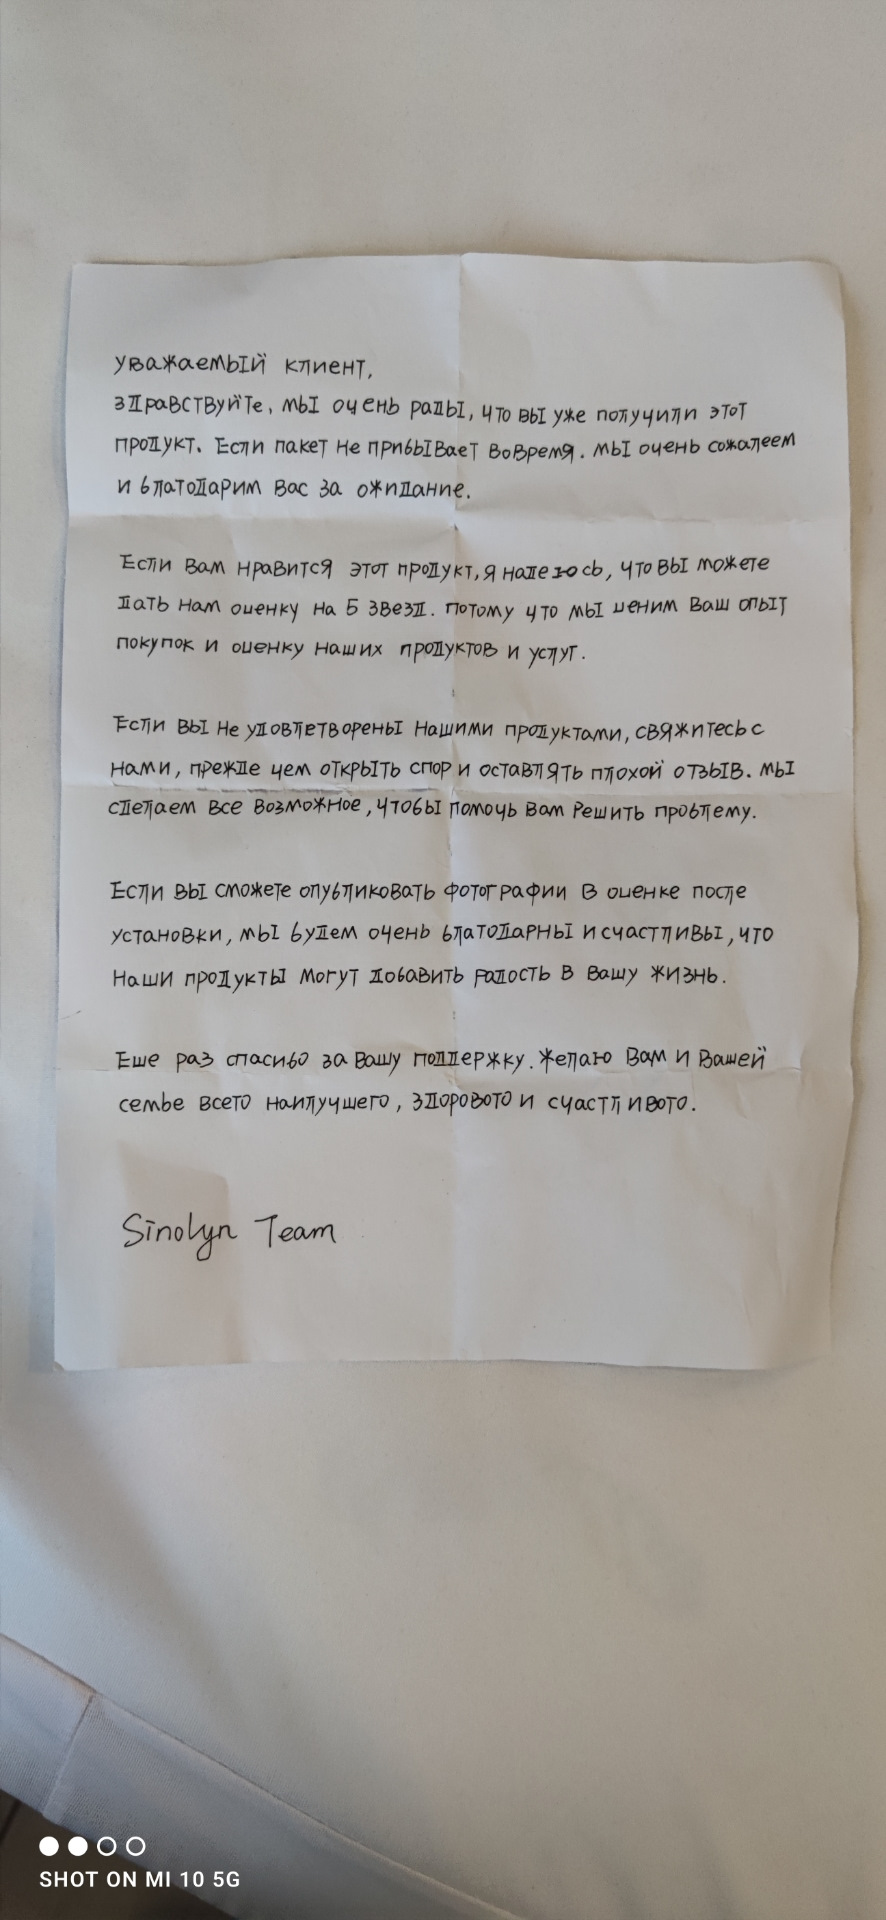 уважаемый клиент,
здравствуйте, мы очень рады, что вы уже получили этот
продукт. Если пакет не прибывает вовремя. мы очень сожалеем
и благодарим вас за ожидание.
Если вам нравится этот продукт, я надеюсь, что вы можете
дать нам оценку на 5 звезд. потому что мы ценим ваш опыт
покупок и оценку наших продуктов и услуг.
Если вы не удовлетворены нашими продуктами, свяжитесь с
нами, прежде чем открыть спор и оставлять плохой отзыв. мы
сделаем все возможное, чтобы помочь вам решить проблему.
Если вы сможете опубликовать фотографии в оценке после
установки, мы будем очень благодарны и счастливы, что
наши продукты могут добавить радость в вашу жизнь.
Еше раз спасибо за вашу поддержку. желаю вам и вашей
семье всего наилучшего, здорового и счастливого.
Sinolyn Team
SHOT ON MI 10 5G